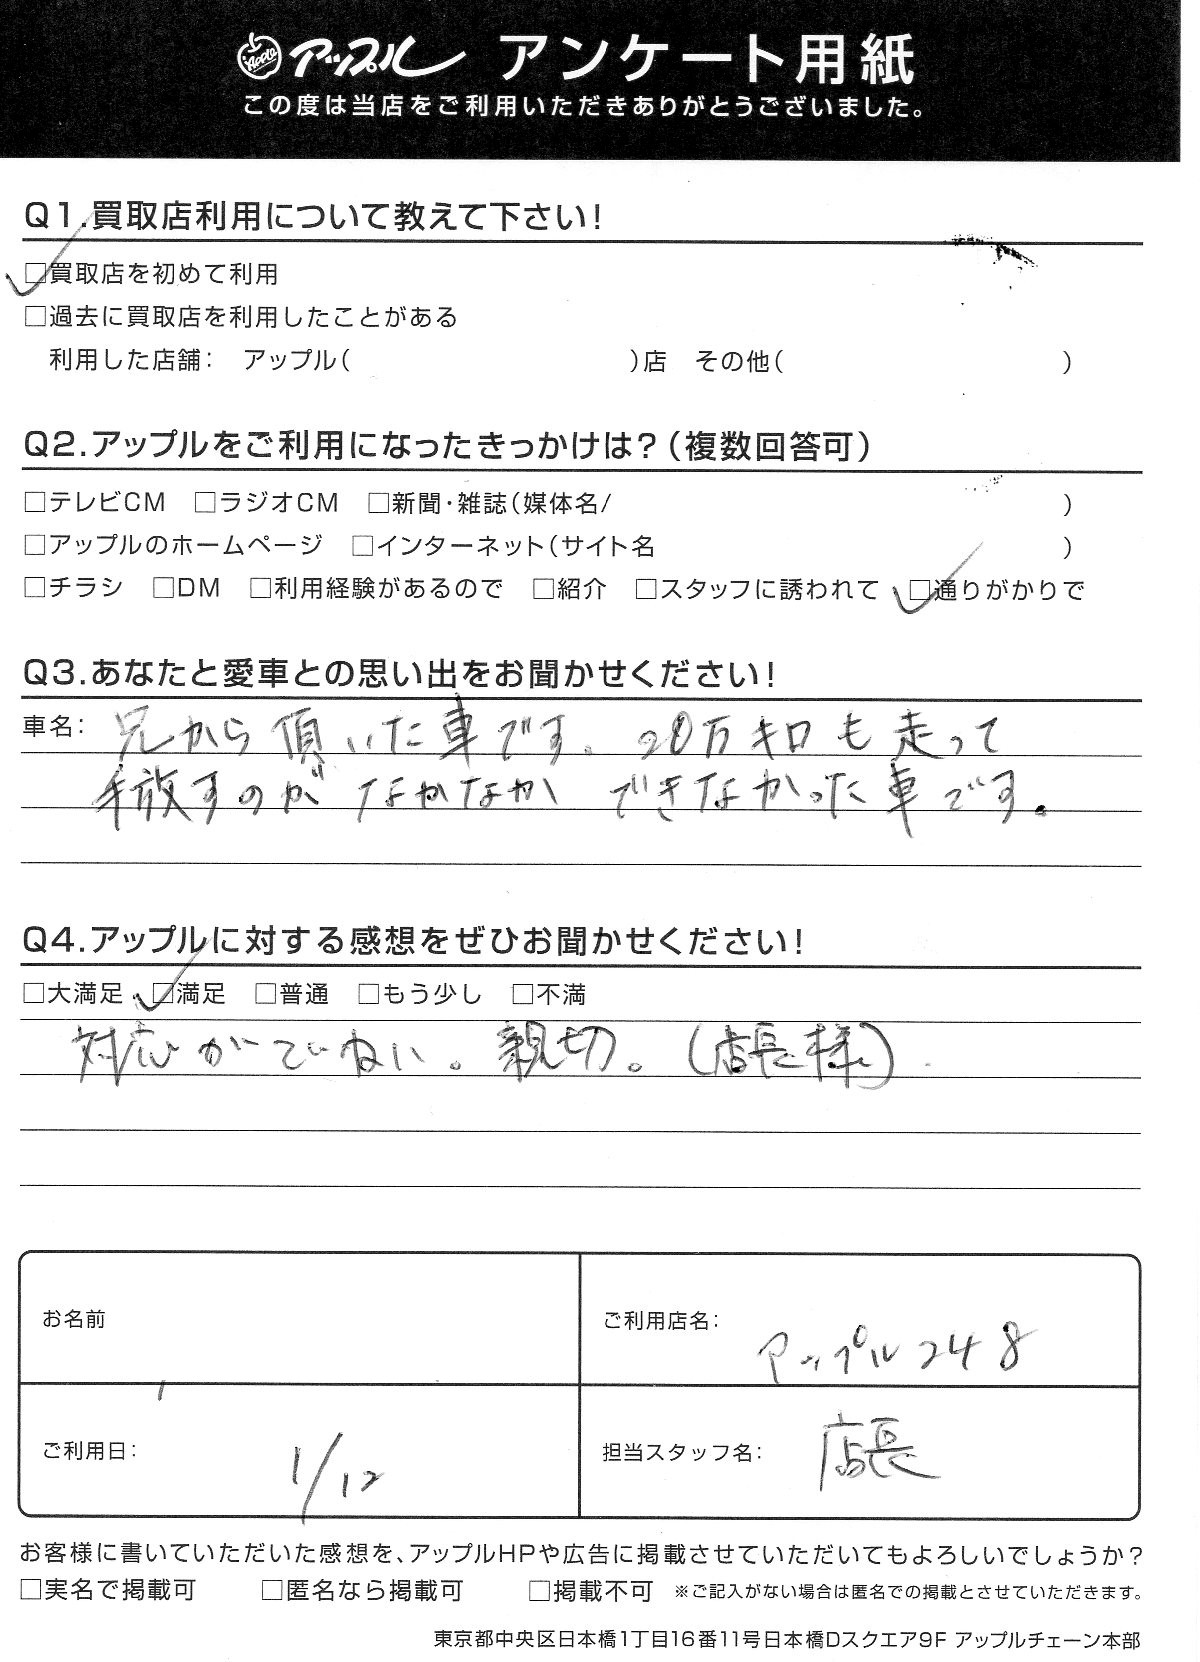 Apple アップル アンケート用紙
この度は当店をご利用いただきありがとうございました。
Q1.買取店利用について教えて下さい!
□買取店を初めて利用
□過去に買取店を利用したことがある
利用した店舗: アップル( )店 その他( )
Q2.アップルをご利用になったきっかけは?(複数回答可)
□テレビCM □ラジオCM □新聞・雑誌(媒体名/ )
□アップルのホームページ □インターネット(サイト名 )
□チラシ □DM □利用経験があるので □紹介 □スタッフに誘われて □通りがかりで
Q3.あなたと愛車との思い出をお聞かせください!
車名: 兄から頂いた車です。20万キロも走って
手放すのが なかなか できなかった車です。
Q4.アップルに対する感想をぜひお聞かせください!
□大満足 □満足 □普通 □もう少し □不満
対応がていねい。親切。(店長様)
お名前
ご利用店名: アップル248
ご利用日: 1/12
担当スタッフ名: 店長
お客様に書いていただいた感想を、アップルHPや広告に掲載させていただいてもよろしいでしょうか?
□実名で掲載可 □匿名なら掲載可 □掲載不可 ※ご記入がない場合は匿名での掲載とさせていただきます。
東京都中央区日本橋1丁目16番11号日本橋Dスクエア9F アップルチェーン本部